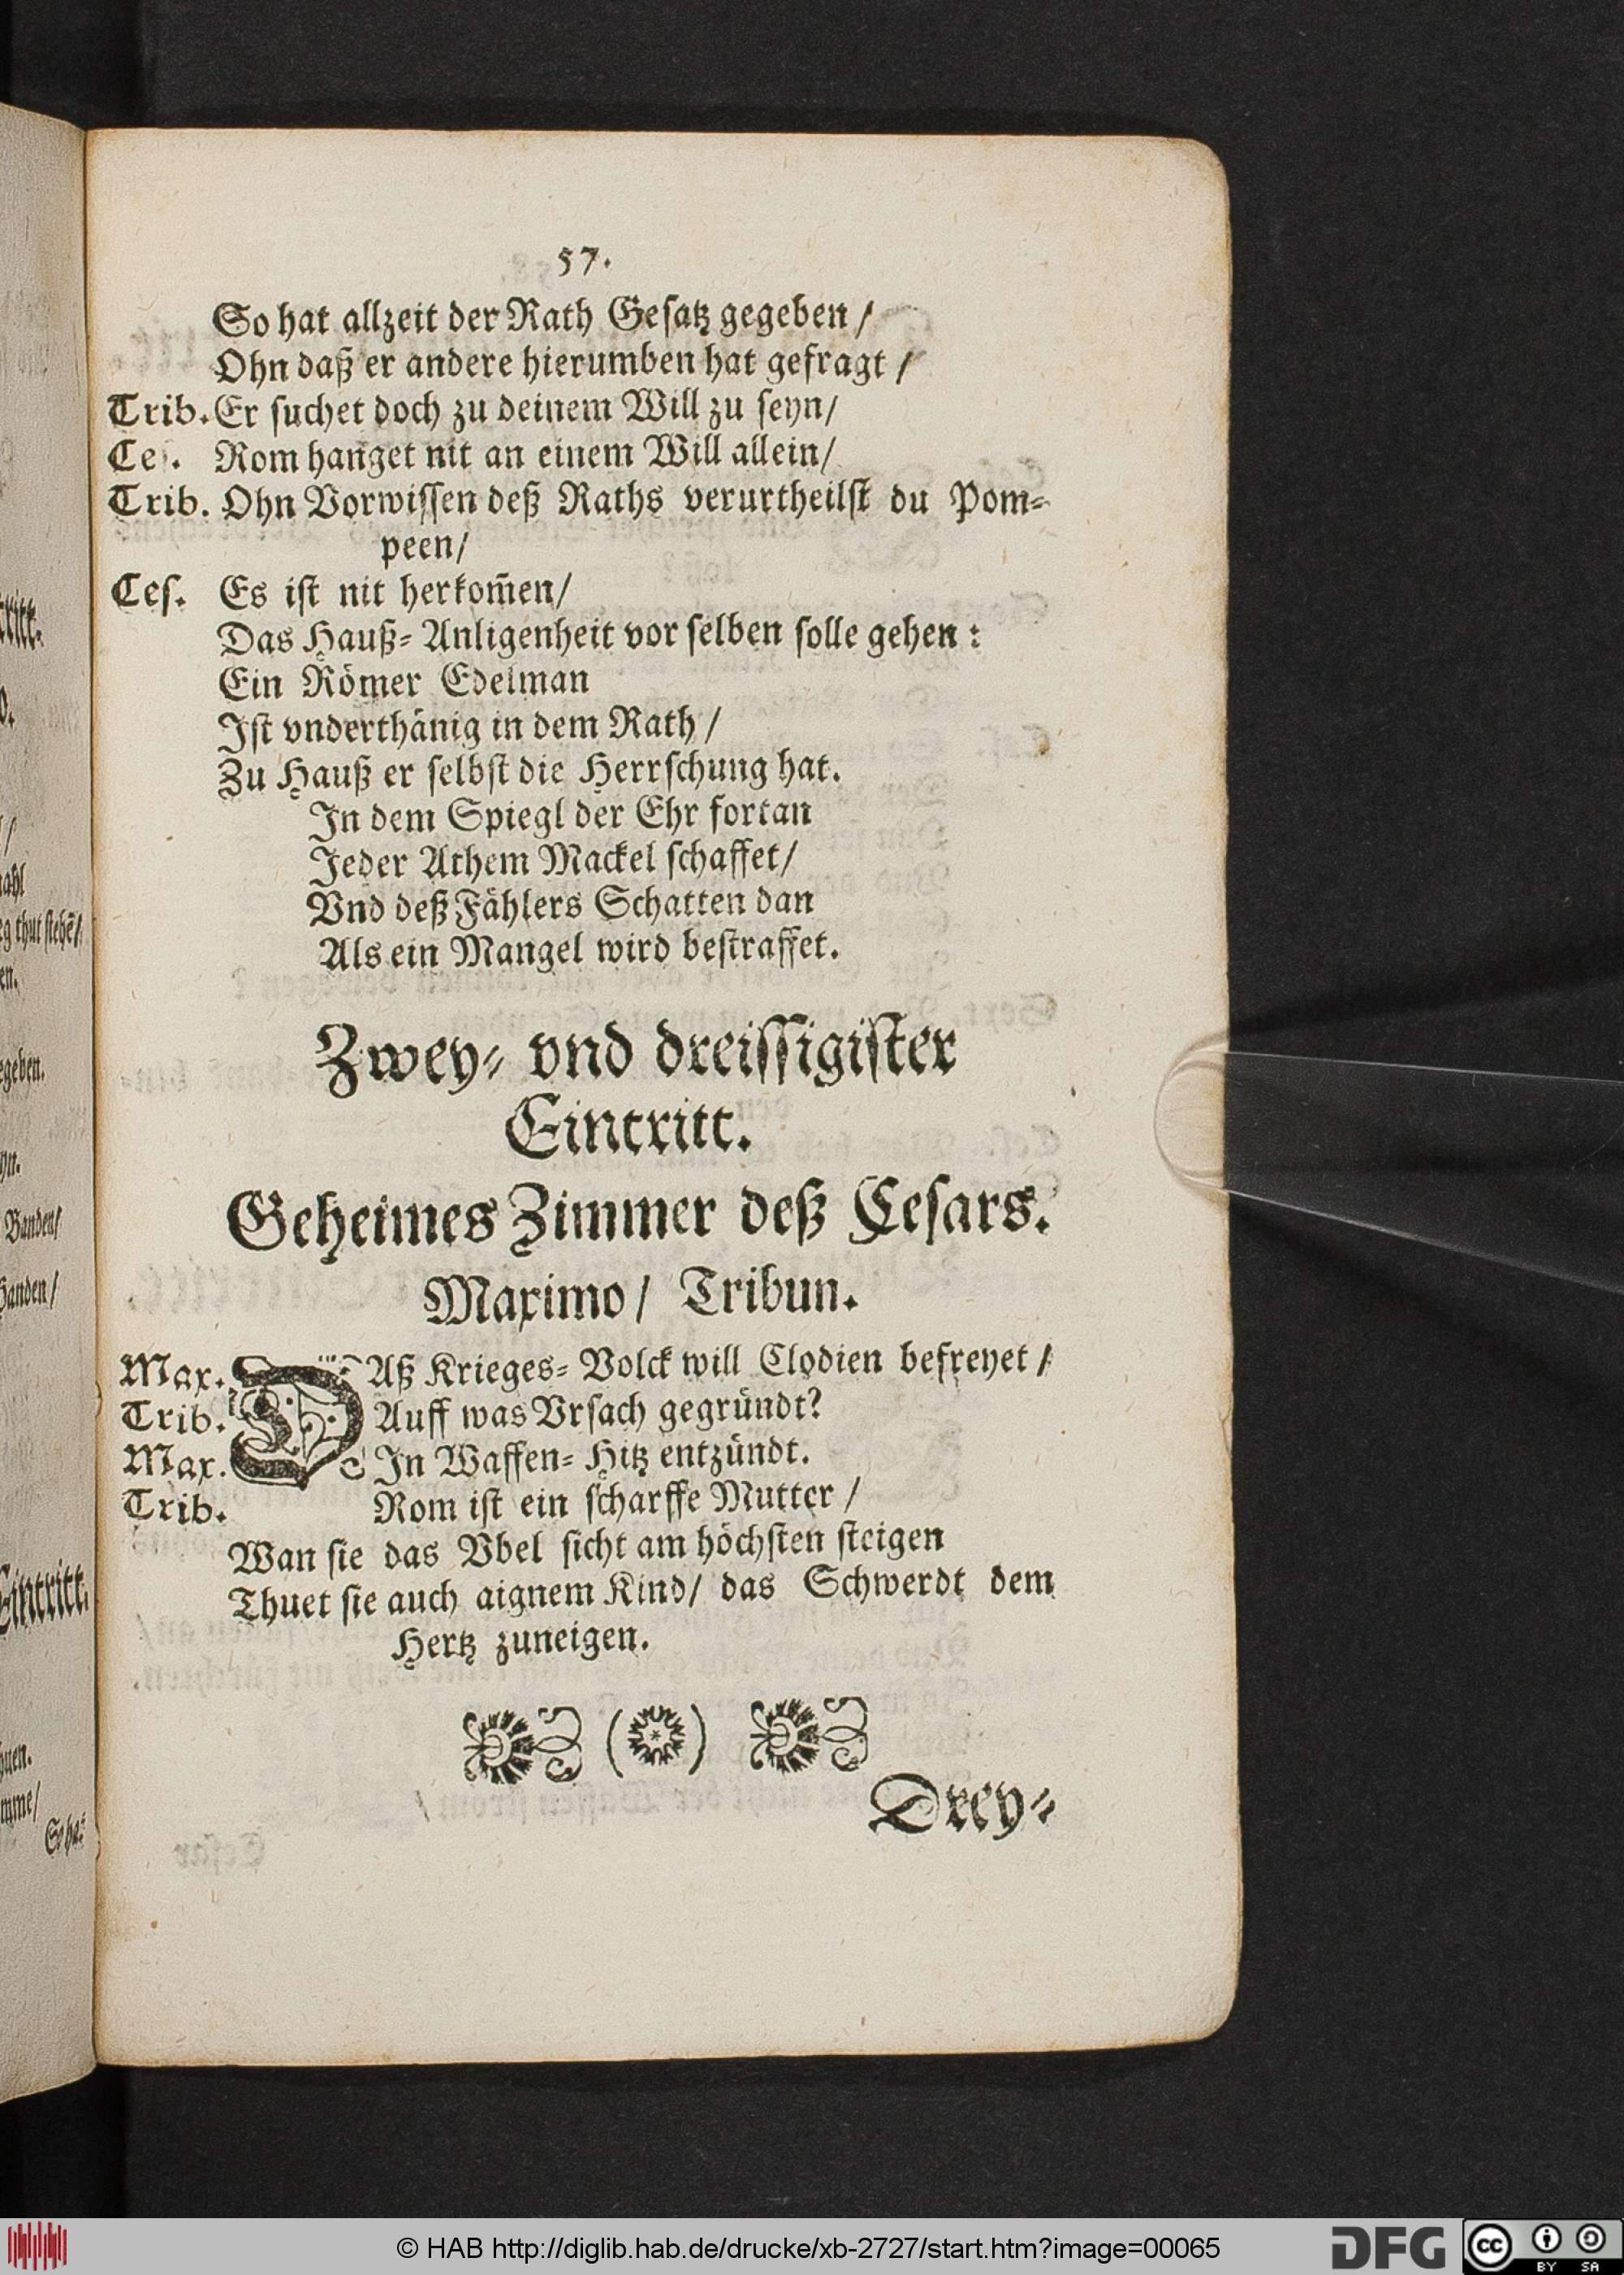 57.
So hat allzeit der Rath Gesatz gegeben /
Ohn daß er andere hierumben hat gefragt /
Trib. Er suchet doch zu deinem Will zu seyn/
Ces. Rom hanget nit an einem Will allein/
Trib. Ohn Vorwissen deß Raths verurtheilst du Pom-
peen/
Ces. Es ist nit herkom̃en/
Das Hauß-Anligenheit vor selben solle gehen :
Ein Römer Edelman
Ist vnderthänig in dem Rath /
Zu Hauß er selbst die Herrschung hat.
In dem Spiegl der Ehr fortan
Jeder Athem Mackel schaffet/
Vnd deß Fählers Schatten dan
Als ein Mangel wird bestraffet.
Zwey- vnd dreissigister
Eintritt.
Geheimes Zimmer deß Cesars.
Maximo / Tribun.
Max. DAß Krieges-Volck will Clodien befreyet /
Trib. Auff was Vrsach gegründt?
Max. In Waffen-Hitz entzündt.
Trib. Rom ist ein scharffe Mutter /
Wan sie das Vbel sicht am höchsten steigen
Thuet sie auch aignem Kind/ das Schwerdt dem
Hertz zuneigen.
Drey-
© HAB http://diglib.hab.de/drucke/xb-2727/start.htm?image=00065
DFG
cc BY SA